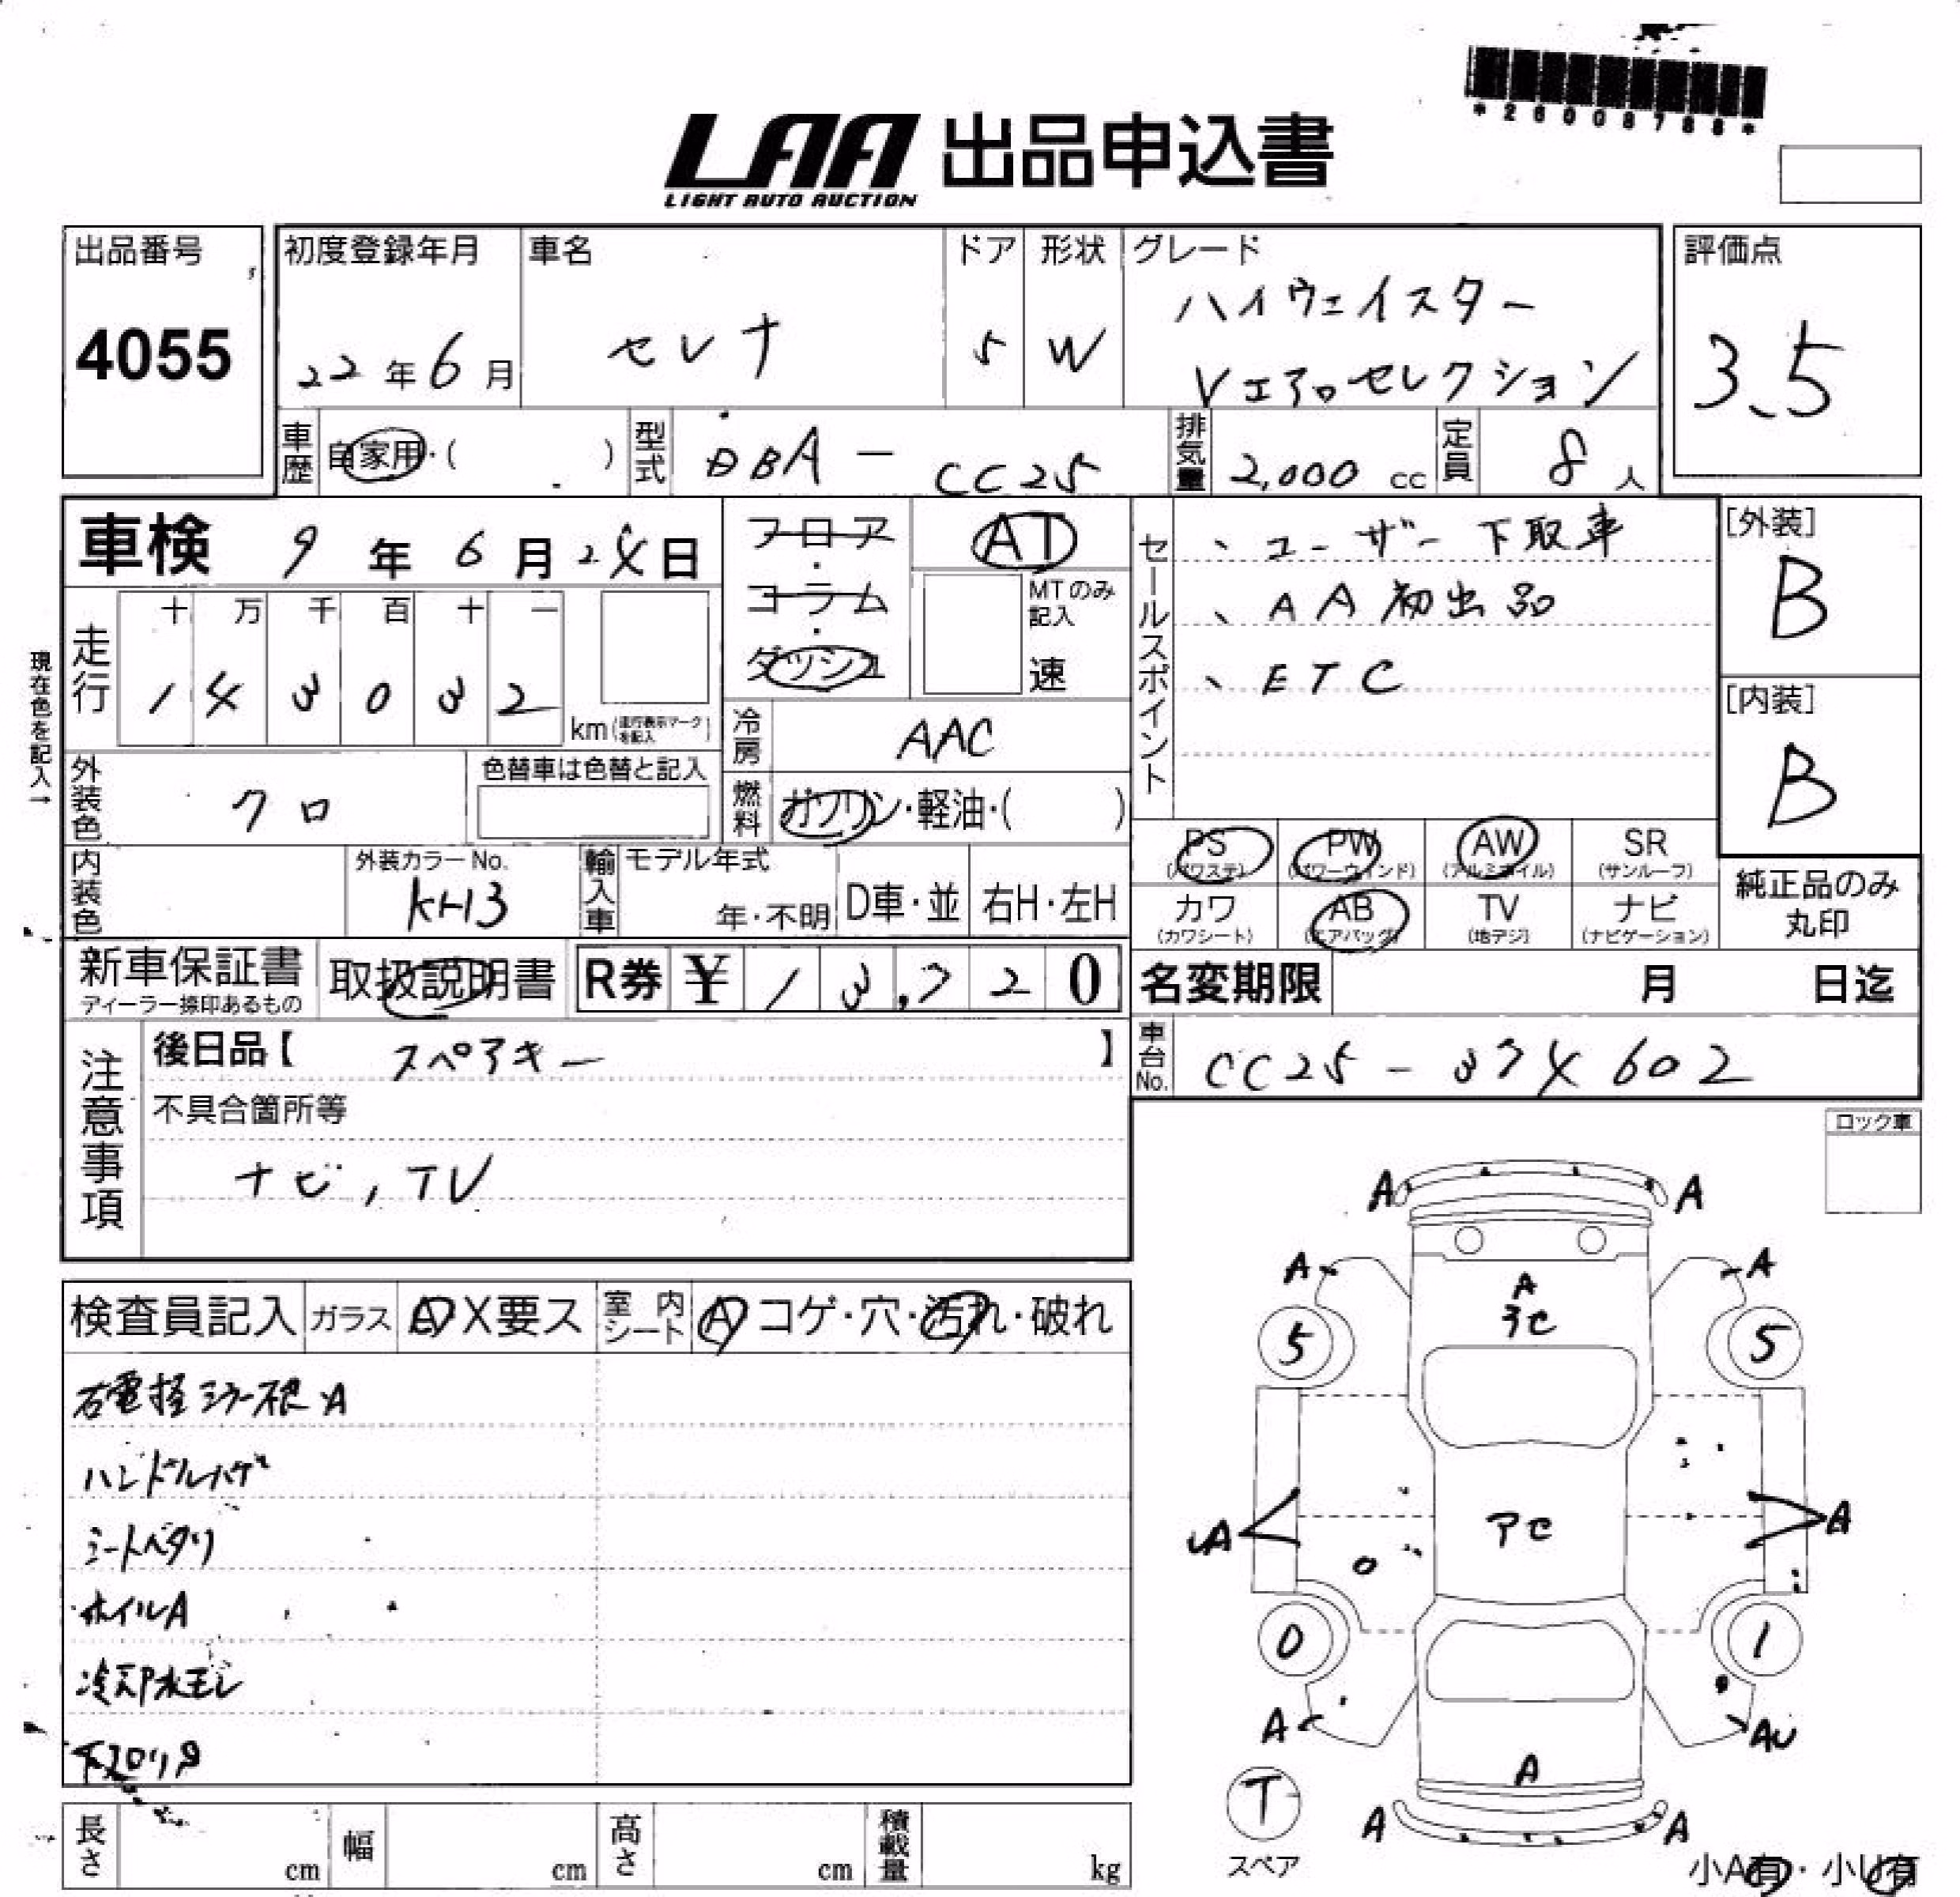 *26008788*
LAA 出品申込書
LIGHT AUTO AUCTION
出品番号
4055
初度登録年月
22年6月
車名
セレナ
ドア
5
形状
W
グレード
ハイウェイスター
Vエアロセレクション
評価点
3.5
車歴
自家用・( )
型式
DBA-CC25
排気量
2,000 cc
定員
8人
車検 9年6月24日
フロア・コラム・ダッシュ
AT
MTのみ記入
速
セールスポイント
、ユーザー下取車
、AA初出品
、ETC
[外装]
B
[内装]
B
現在色を記入→
走行
十 万 千 百 十 一
1 4 3 0 3 2
km(走行表示マークを記入)
冷房
AAC
外装色
クロ
色替車は色替と記入
燃料
ガソリン・軽油・( )
PS (パワステ)
PW (パワーウインド)
AW (アルミホイル)
SR (サンルーフ)
カワ (カワシート)
AB (エアバッグ)
TV (地デジ)
ナビ (ナビゲーション)
純正品のみ
丸印
内装色
外装カラーNo.
KH3
輸入車
モデル年式
年・不明
D車・並
右H・左H
新車保証書
ディーラー捺印あるもの
取扱説明書
R券 ¥ 13,720
名変期限 月 日迄
注意事項
後日品【 スペアキー 】
不具合箇所等
ナビ,TV
車台No.
CC25-374602
ロック車
検査員記入
ガラス
A X要ス
室内シート
A コゲ・穴・汚れ・破れ
ハンドルハゲ
シートヘタリ
ホイルA
冷却水モレ
下スロリ
A A
A A
A
5 5
A A
0 1
A AU
A
T
スペア
A A
小A有・小U有
長さ cm
幅 cm
高さ cm
積載量 kg